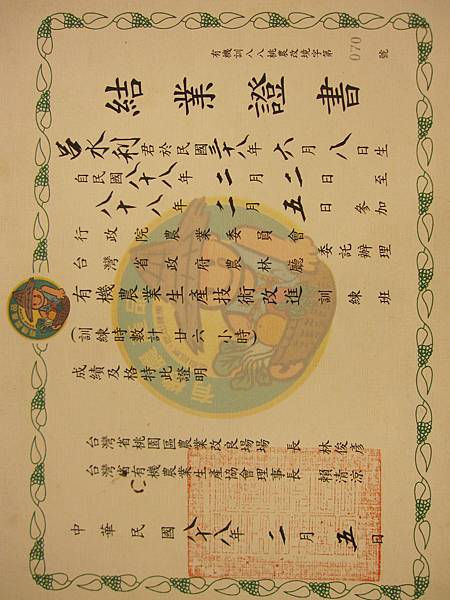 有機訓八八桃農改境字第 070 號
結業證書
呂水利君於民國三十八年六月八日生
自民國八十八年二月二日至
八十八年二月五日參加
行政院農業委員會
台灣省政府農林廳 委託辦理
有機農業生產技術改進訓練班
(訓練時數計廿六小時)
成績及格特此證明
台灣省桃園區農業改良場場長 林俊彥
台灣省有機農業生產協會理事長 賴清涼
中華民國八十八年二月五日